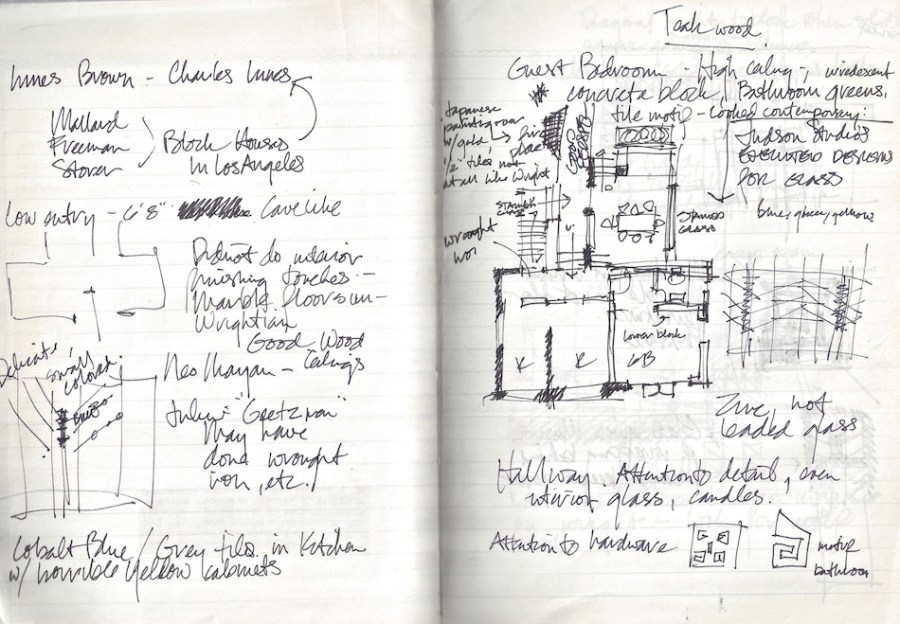 Innes Brown - Charles Innes
Mallard
Freeman
Storer
Block Houses
in Los Angeles
Low entry - 6'8" Cavelike
Did not do interior
finishing touches -
Marble floors un-
Wrightian
Good Wood
Ceilings
Neo Mayan -
Delicate,
small
colored.
Julius "Geetzman"
May have
done wrought
iron, etc.
Cobalt Blue / Grey tiles in Kitchen
w/ horrible yellow cabinets
Teak wood.
Guest Bedroom - High ceiling -, iridescent
concrete block, Bathroom greens,
tile motif - looked contemporary:
Japanese
painting over
w/gold
fire
place
1/2" tiles not
at all like Wright
Judson Studios
executed designs
for glass
blue, grey, yellows
stained
glass
stained
glass
wrought
lower block
K
K
GB
Zinc, not
leaded glass
Hallway Attention to detail, even
interior glass, candles.
Attention to hardware
motif
bathroom